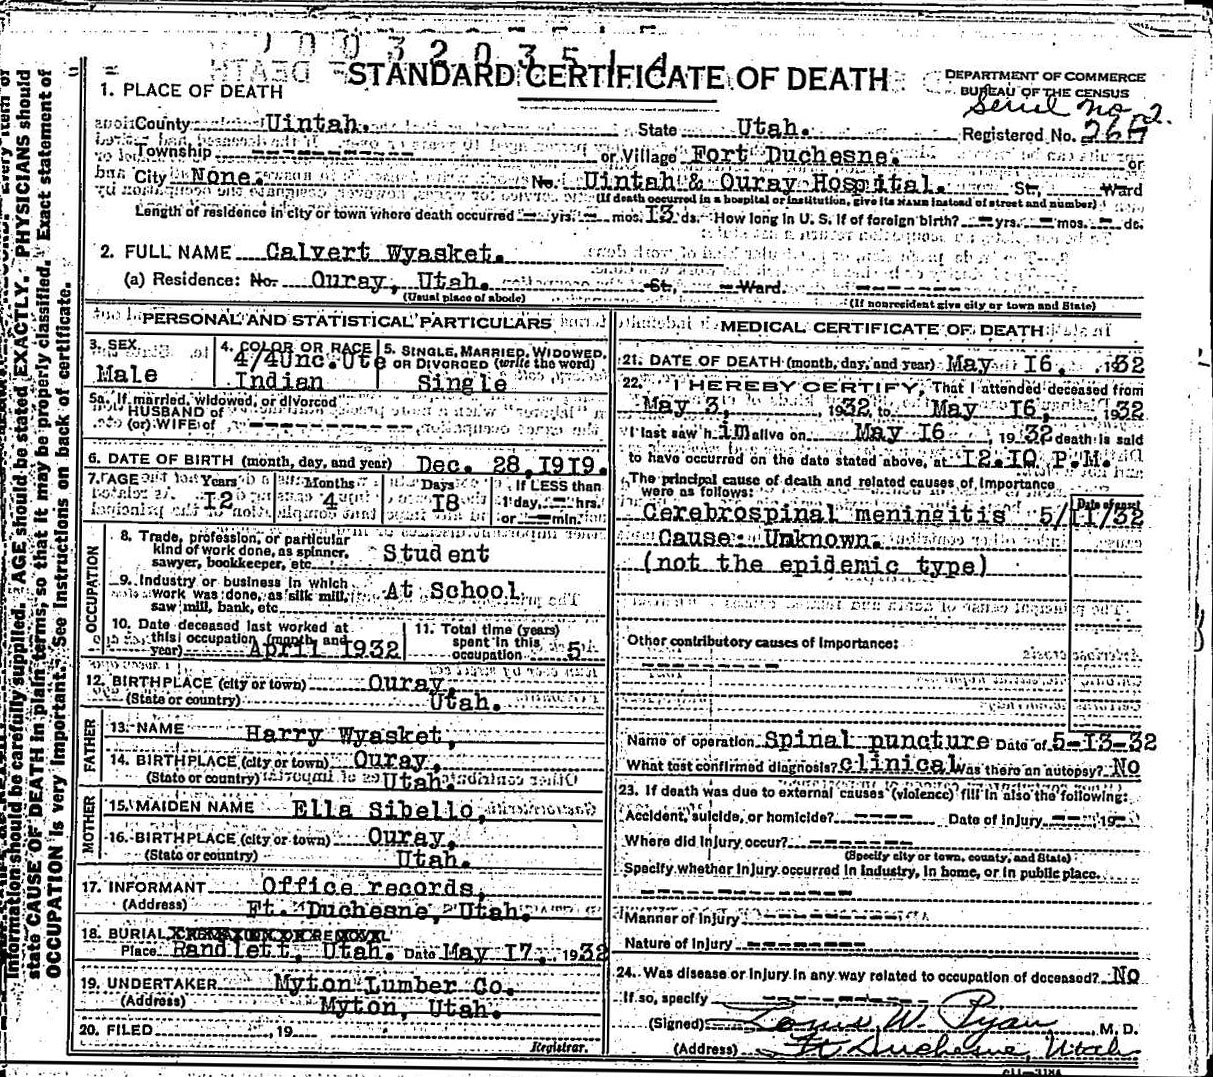 STANDARD CERTIFICATE OF DEATH
DEPARTMENT OF COMMERCE
BUREAU OF THE CENSUS
Serial No. 2.
1. PLACE OF DEATH
County Uintah. State Utah. Registered No.
Township ---------- or Village Fort Duchesne. or
City None. No. Uintah & Ouray Hospital. St., Ward
(If death occurred in a hospital or institution, give its NAME instead of street and number)
Length of residence in city or town where death occurred — yrs. — mos. 13 ds. How long in U. S. if of foreign birth? — yrs. — mos. — ds.
2. FULL NAME Calvert Wyasket.
(a) Residence: No. Ouray, Utah. St., Ward.
(Usual place of abode) (If nonresident give city or town and State)
PERSONAL AND STATISTICAL PARTICULARS
3. SEX
Male
4. COLOR OR RACE
4/4Unc.Ute
Indian
5. SINGLE, MARRIED, WIDOWED,
OR DIVORCED (write the word)
Single
5a. If married, widowed, or divorced
HUSBAND of
(or) WIFE of ----------
6. DATE OF BIRTH (month, day, and year) Dec. 28,1919.
7. AGE Years Months Days If LESS than
12 4 18 1 day, — hrs.
or — min.
OCCUPATION
8. Trade, profession, or particular
kind of work done, as spinner,
sawyer, bookkeeper, etc. Student
9. Industry or business in which
work was done, as silk mill,
saw mill, bank, etc At School
10. Date deceased last worked at
this occupation (month and
year) April 1932
11. Total time (years)
spent in this
occupation 5
12. BIRTHPLACE (city or town) Ouray,
(State or country) Utah.
FATHER
13. NAME Harry Wyasket,
14. BIRTHPLACE (city or town) Ouray,
(State or country) Utah.
MOTHER
15. MAIDEN NAME Ella Sibello,
16. BIRTHPLACE (city or town) Ouray,
(State or country) Utah.
17. INFORMANT Office records,
(Address) Ft. Duchesne, Utah.
18. BURIAL, CREMATION OR REMOVAL
Place Randlett, Utah. Date May 17, 1932
19. UNDERTAKER Myton Lumber Co.
(Address) Myton, Utah.
20. FILED , 19
Registrar.
MEDICAL CERTIFICATE OF DEATH
21. DATE OF DEATH (month, day, and year) May 16, 1932
22. I HEREBY CERTIFY, That I attended deceased from
May 3, 1932 to May 16, 1932
I last saw him alive on May 16, 1932 death is said
to have occurred on the date stated above, at 12.10 P.M.
The principal cause of death and related causes of importance
were as follows: Date of onset
Cerebrospinal meningitis 5/11/32
Cause: Unknown.
(not the epidemic type)
Other contributory causes of importance:
----------
Name of operation Spinal puncture Date of 5-13-32
What test confirmed diagnosis? clinical Was there an autopsy? No
23. If death was due to external causes (violence) fill in also the following:
Accident, suicide, or homicide? ---- Date of injury --- 19—
Where did injury occur? -------
(Specify city or town, county, and State)
Specify whether injury occurred in industry, in home, or in public place.
----------
Manner of injury ----------
Nature of injury --------
24. Was disease or injury in any way related to occupation of deceased? No
If so, specify ----------
(Signed) Louis W. Ryan, M. D.
(Address) Ft Duchesne, Utah
information should be carefully supplied. AGE should be stated EXACTLY. PHYSICIANS should
state CAUSE OF DEATH in plain terms, so that it may be properly classified. Exact statement of
OCCUPATION is very important. See instructions on back of certificate.